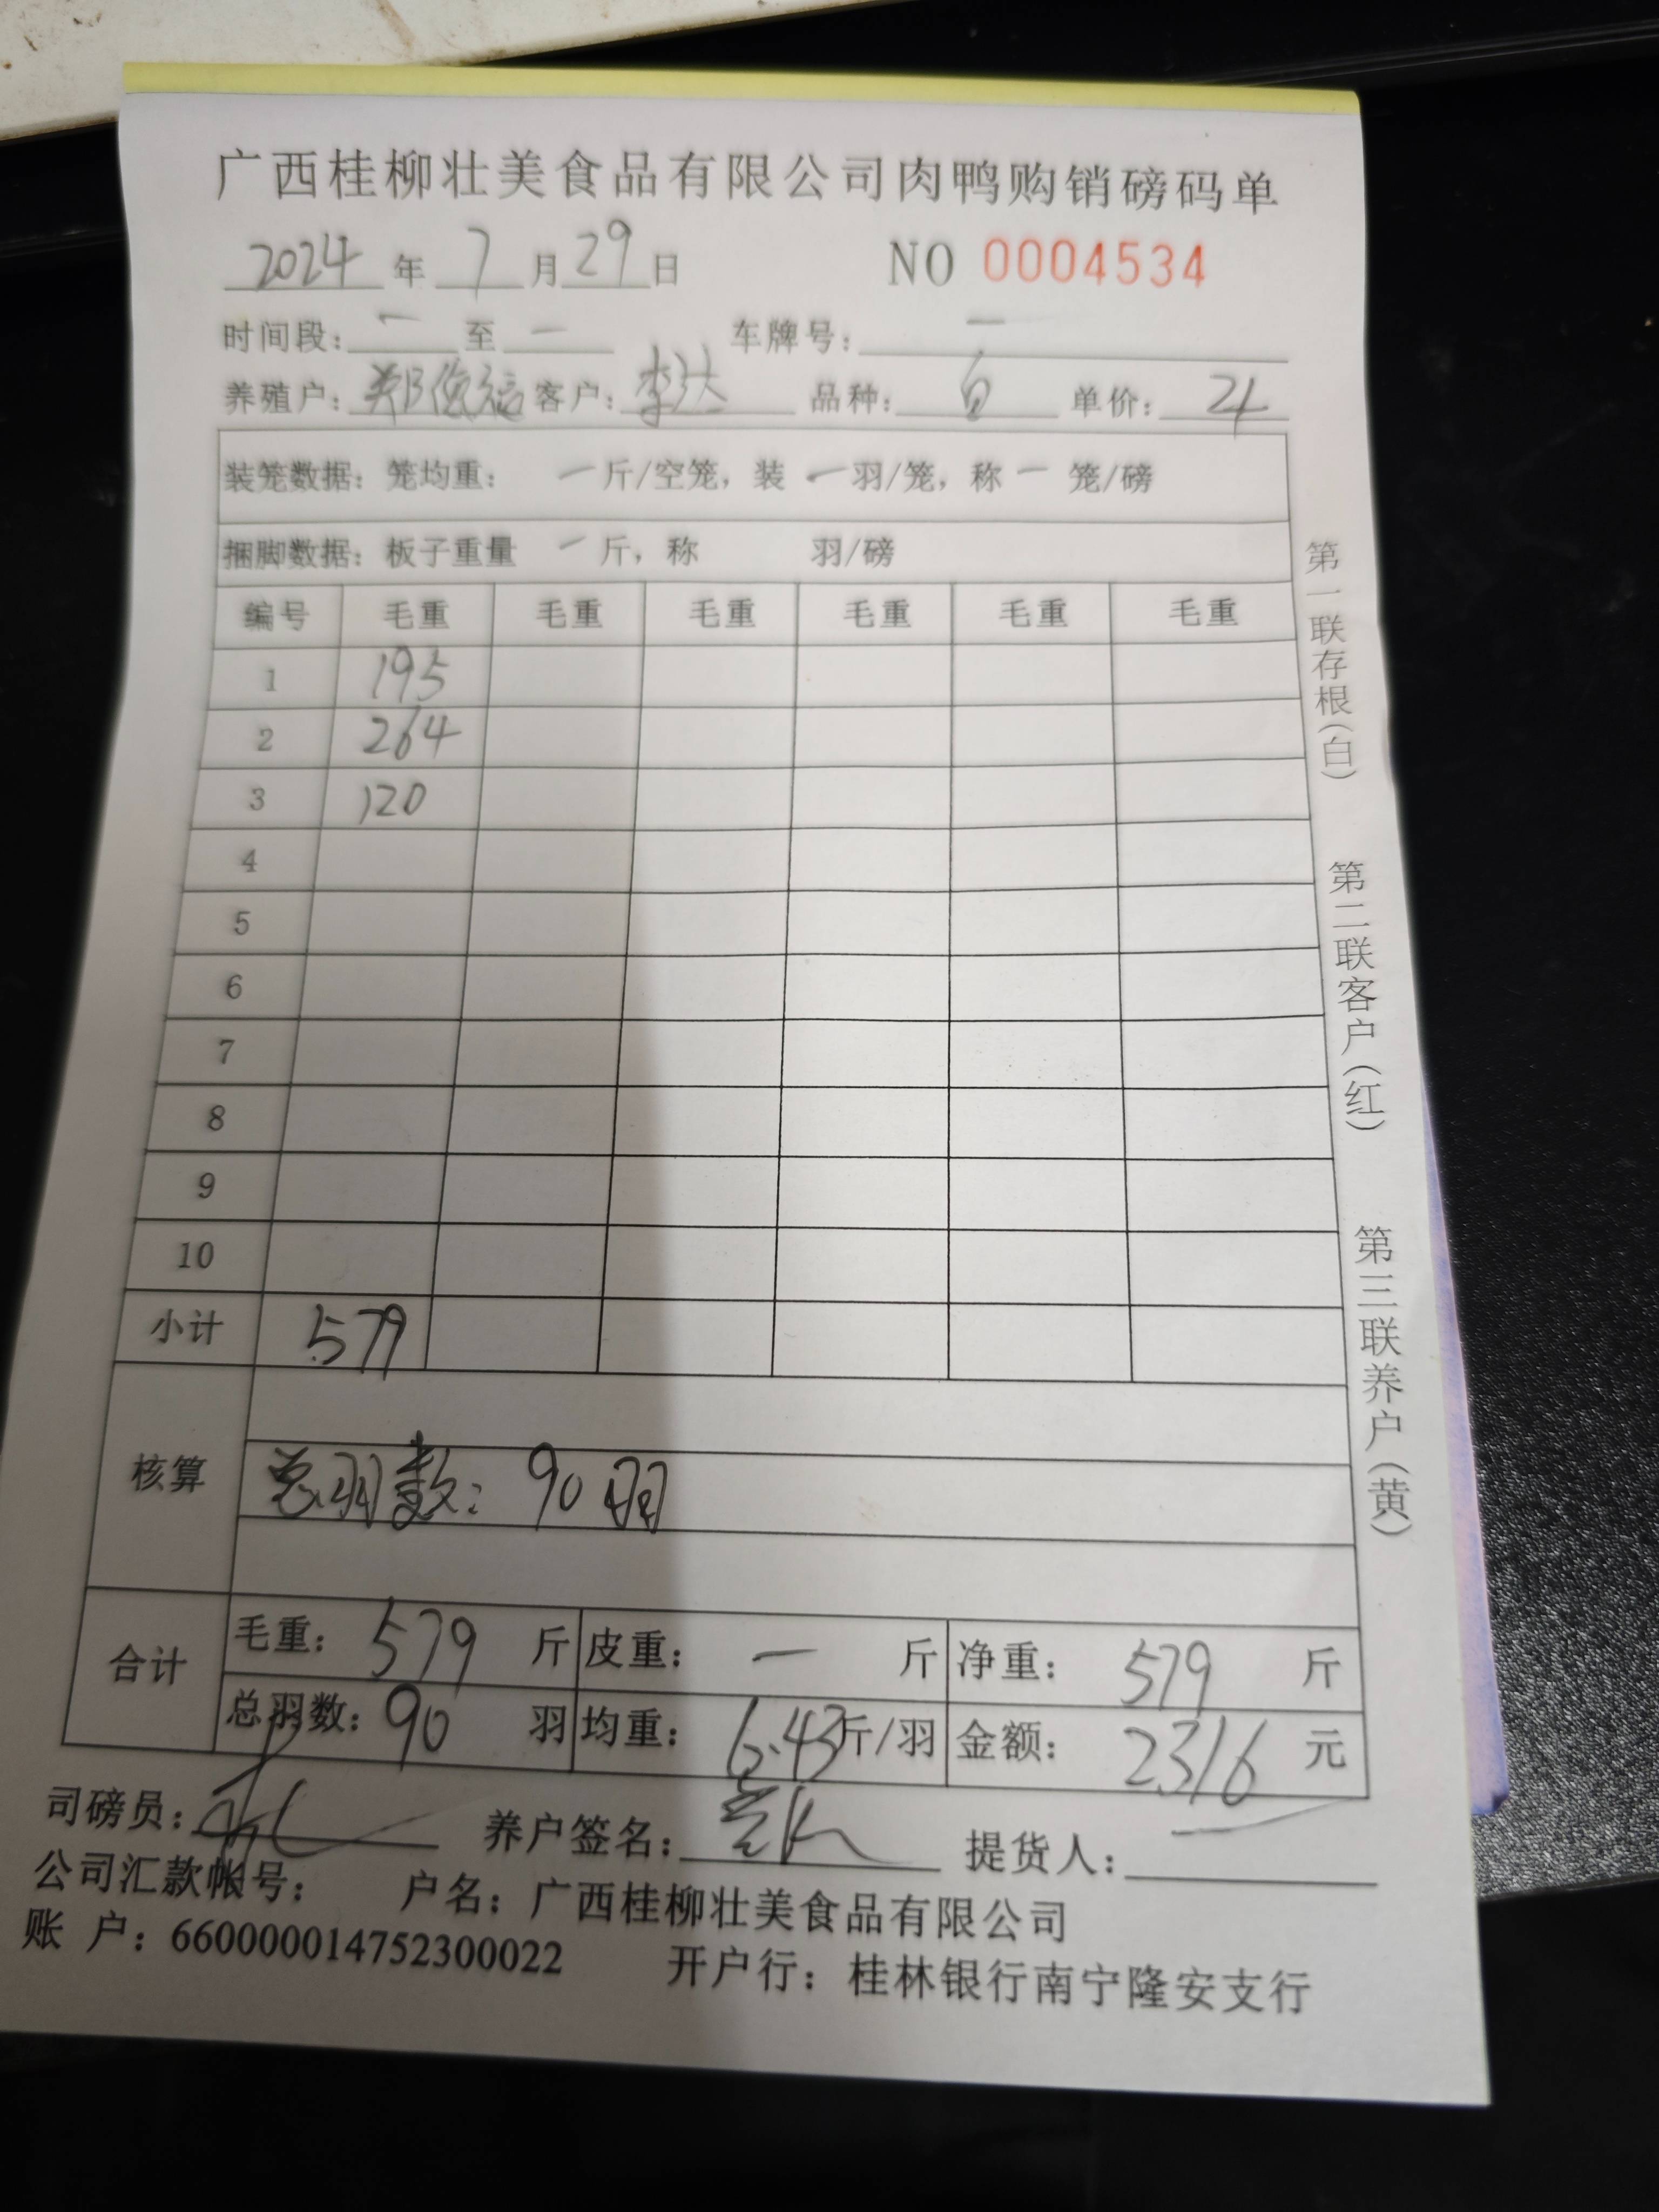 广西桂柳壮美食品有限公司肉鸭购销磅码单
2024 年 7 月 29 日 NO 0004534
时间段: 一 至 一 车牌号: 一
养殖户: 郑俊福 客户: 李达 品种: 白 单价: 4
装笼数据: 笼均重: 一 斤/空笼, 装 一 羽/笼, 称 一 笼/磅
捆脚数据: 板子重量 一 斤, 称 羽/磅
编号 毛重 毛重 毛重 毛重 毛重 毛重
1 195
2 264
3 120
4
5
6
7
8
9
10
小计 579
核算 总羽数: 90羽
合计 毛重: 579 斤 皮重: 一 斤 净重: 579 斤
总羽数: 90 羽 均重: 6.43 斤/羽 金额: 2316 元
司磅员: 养户签名: 提货人: 一
公司汇款帐号: 户名: 广西桂柳壮美食品有限公司
账 户: 660000014752300022 开户行: 桂林银行南宁隆安支行
第一联存根(白)
第二联客户(红)
第三联养户(黄)